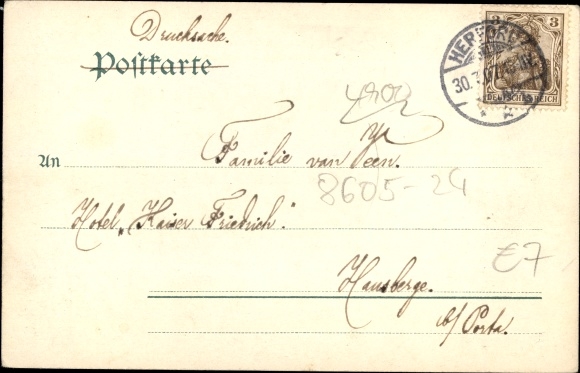 Drucksache.
Postkarte
3 3
HERFORD
30.3.07
DEUTSCHES REICH
An
Familie van Veen.
8605-24
Hotel „Kaiser Friedrich".
€7
Hausberge.
b/ Porta.